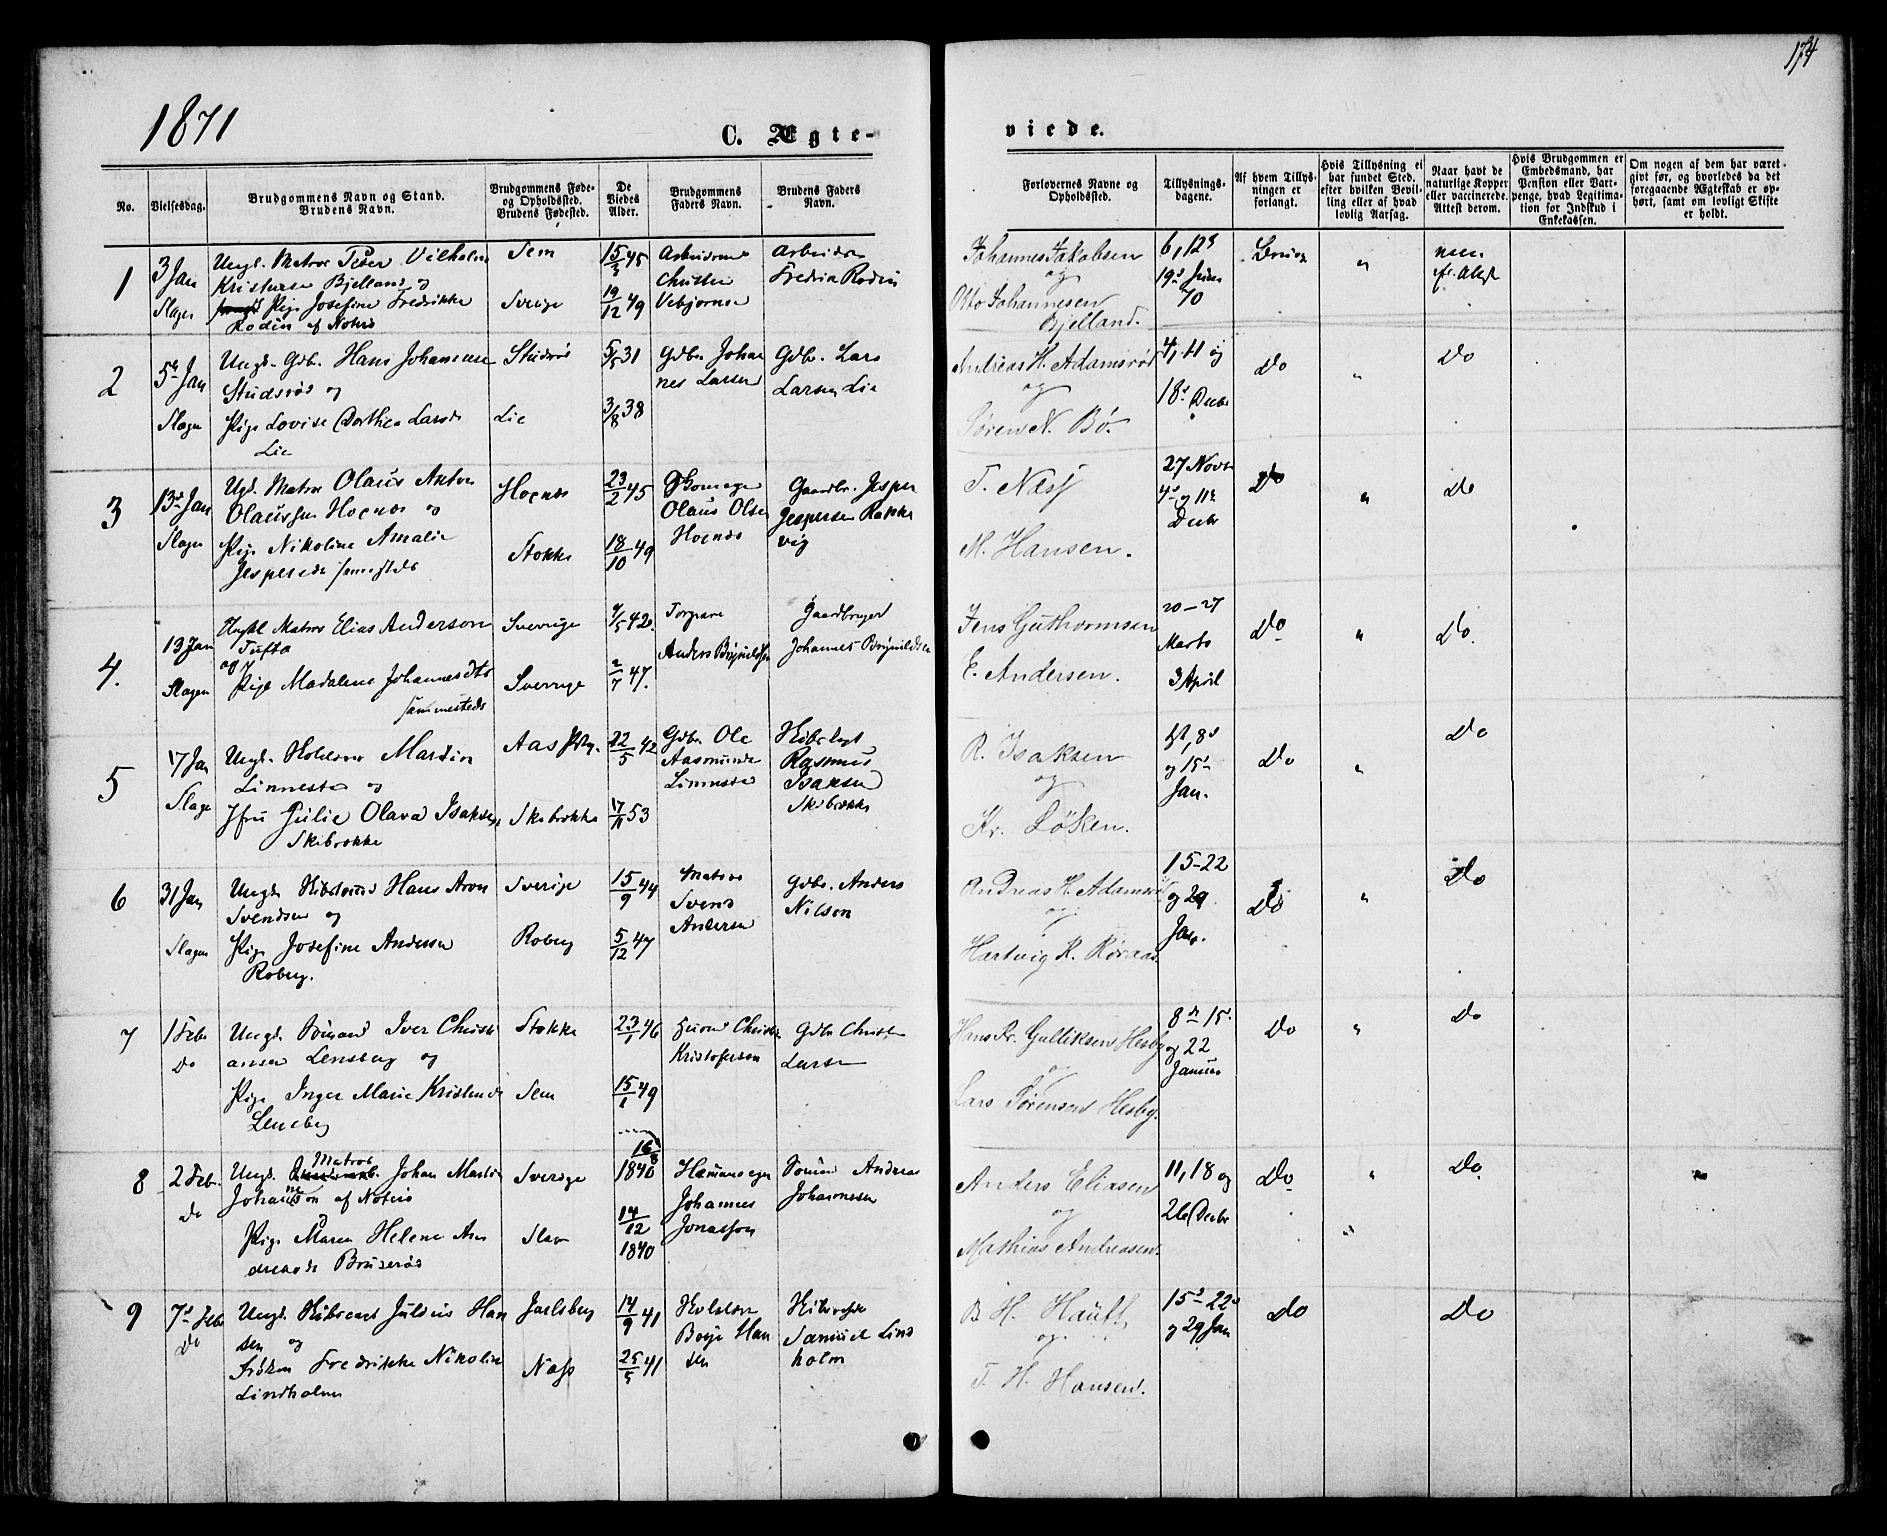 1871
174
C. Ægte-
viede.
No.
Vielsesdag.
Brudgommens Navn og Stand.
Brudens Navn.
Brudgommens Føde-
og Opholdssted.
Brudens Fødested.
De
Viedes
Alder.
Brudgommens
Faders Navn.
Brudens Faders
Navn.
Forlovernes Navne og
Opholdssted.
Tillysnings-
dagene.
Af hvem Tillys-
ningen er
forlangt.
Hvis Tillysning ei
har fundet Sted,
efter hvilken Bevil-
ling eller af hvad
lovlig Aarsag.
Naar havt de
naturlige Kopper
eller vaccinerede.
Attest derom.
Hvis Brudgommen er
Embedsmand, har
Pension eller Vart-
penge, hvad Legitima-
tion for Indskud i
Enkekassen.
Om nogen af dem har været
givt før, og hvorledes da det
foregaaende Ægteskab er op-
hørt, samt om lovligt Skifte
er holdt.
1
3 Jan
Slagen
Ungk. Matros Peter Vilhelm
Kristensen Bjelland og
Pige Josefine Fredrikke
Rodin af Noterø
Sem
Sverige
15/3 45
19/12 49
Arbeidsmand
Christen
Vebjørnsen
Arbeidsm
Fredrik Rodin
Johannes Jakobsen
og
Otto Johannesen
Bjelland.
6, 12
19 Juni
70
"
2
5 Jan
Slagen
Ungk. Gdbr. Hans Johannesen
Studsrød og
Pige Lovise Dorthea Larsd
Lie
Studsrød
Lie
5/5 31
3/8 38
Gdbr. Johan
nes Larsen
Gdbr. Lars
Larsen Lie
Andreas H. Adamsrød
og
Søren N. Bø.
4, 11 og
18 Decbr
Do
"
Do
3
13 Jan
Slagen
Ugk. Matros Olaus Anton
Olaussen Hoenæs og
Pige Nikoline Amalie
Jespersdr sammesteds
Hoenæs
Stokke
23/2 45
18/10 49
Skomager
Olaus Olsen
Hoenæs
Gaardbr. Jesper
Jespersen Rakke
vig
T. Næss
M. Hansen.
27 Novbr
4 og 11
Decbr
Do
"
Do
4.
13 Jan
Slagen
Ungkl Matros Elias Anderson
Tufto
og
Pige Madalene Johannesdtr
sammesteds
Sverrige
Sverrige
9/5 42.
2/7 47.
Torpare
Anders Brynildsen
Gaardbruger
Johannes Brynildsen
Jens Guthormsen
E. Andersen.
20-27
Marts
3 April
Do
"
Do.
5
17 Jan
Slagen
Ungk. Martin
Linnestad og
Jfru Julie Olava Isaksen
Skibrokke
Aas Prstg.
Skibrokke
22/5 42
17/11 53
Gdbr Ole
Aasmundsen
Linnestad
Rasmus
Isaksen
Skibrokke
R. Isaksen
og
Kr. Løken.
1, 8
og 15
Jan.
Do
"
Do
6
31 Jan
Slagen
Ungk. Hans Aron
Svendsen og
Pige Josefine Andersen
Roberg.
Sverige
Roberg
15/9 44
5/12 47
Matros
Svend
Andersen
Gdbr. Anders
Nilsen
Andreas H. Adamsrød
og
Hartvig R. Røraas.
15-22
og 29
Jan.
Do
"
Do
7
1 Febr
Do
Ungk. Sømand Iver Christi
ansen Lensberg og
Pige Inger Marie Kristensd
Lensberg
Stokke
Sem
23/1 46
15/1 49
Husm Christen
Kristofersen
Gdbr Christ
Larsen
Hans Kr. Gulliksen Hesby
og
Lars Sørensen Hesby.
8 15
og 22
Januar
Do
"
Do
8
2 Febr.
do
Matros
Ungk. Johan Martin
Johannson af Noterø
Pige Maren Helene An
dreasdr Bruserød
Sverige
Slav
16/8
1840
14/12
1840
Hemmansegen
Johannes
Jonasson
Sømand Andreas
Johannesen
Anders Eliasen
og
Mathias Andreasen.
11, 18 og
26 Decbr
Do
"
"
Do
9
7 Febr
do
Ungk. Skibscapt Julius Han
sen og
Frøken Fredrikke Nikoline
Lindholm
Jarlsberg
Næss
14/9 41
25/5 41
Boye Han
sen
Samuel Lind
holm
B. H. Hauff
og
T. H. Hansen.
15 22
og 29 Jan
Do
Do